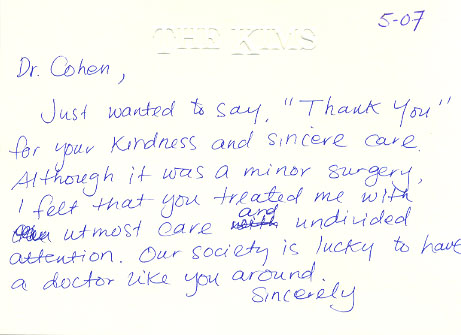 5-07
THE KIMS
Dr. Cohen,
Just wanted to say, "Thank You"
for your kindness and sincere care.
Although it was a minor surgery,
I felt that you treated me with
utmost care and undivided
attention. Our society is lucky to have
a doctor like you around.
Sincerely